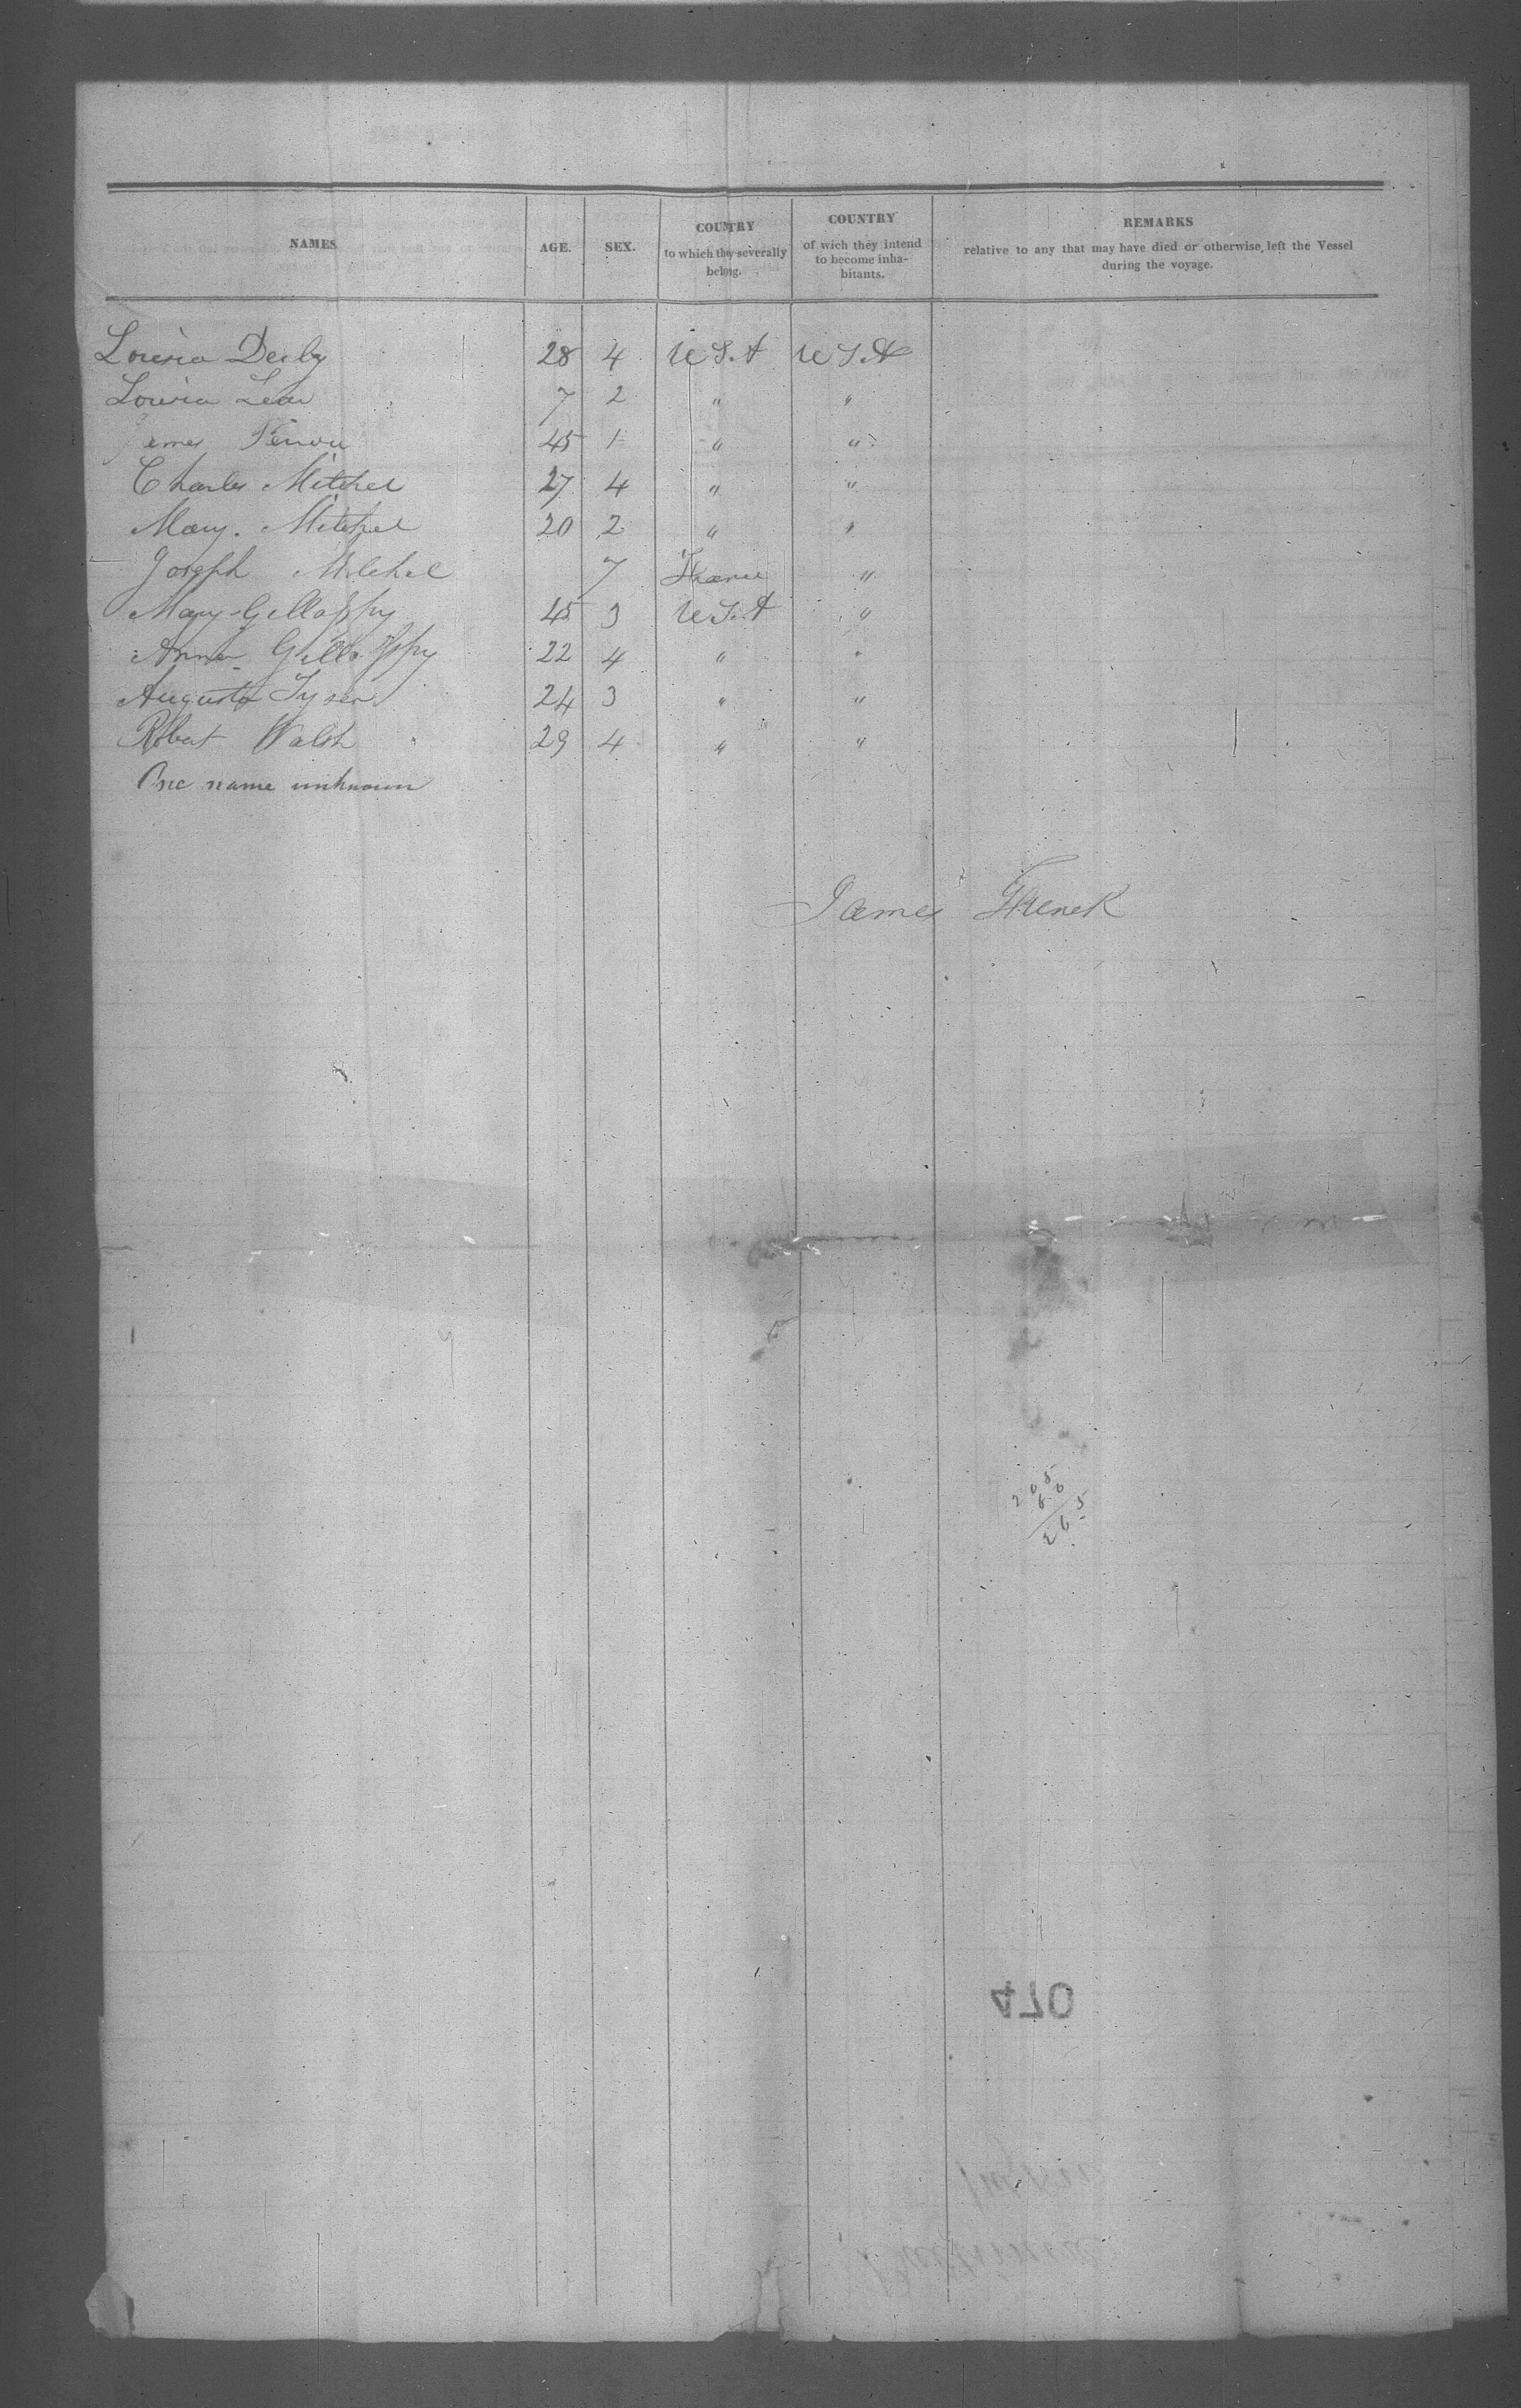 NAMES AGE. SEX. COUNTRY to which they severally belong. COUNTRY of wich they intend to become inhabitants. REMARKS relative to any that may have died or otherwise left the Vessel during the voyage.
Louisa 28 4 U S. A U S. A
Louisa Lear 7 2 " "
James 45 1 " "
Charles Mitchel 27 4 " "
Mary. Mitchel 20 2 " "
Joseph Mitchel 7 France "
Mary 45 3 U S. A "
Anna 22 4 " "
Augusta Tyser 24 3 " "
Robert Walsh 29 4 " "
One name unknown
James Funck
205
60
265
470